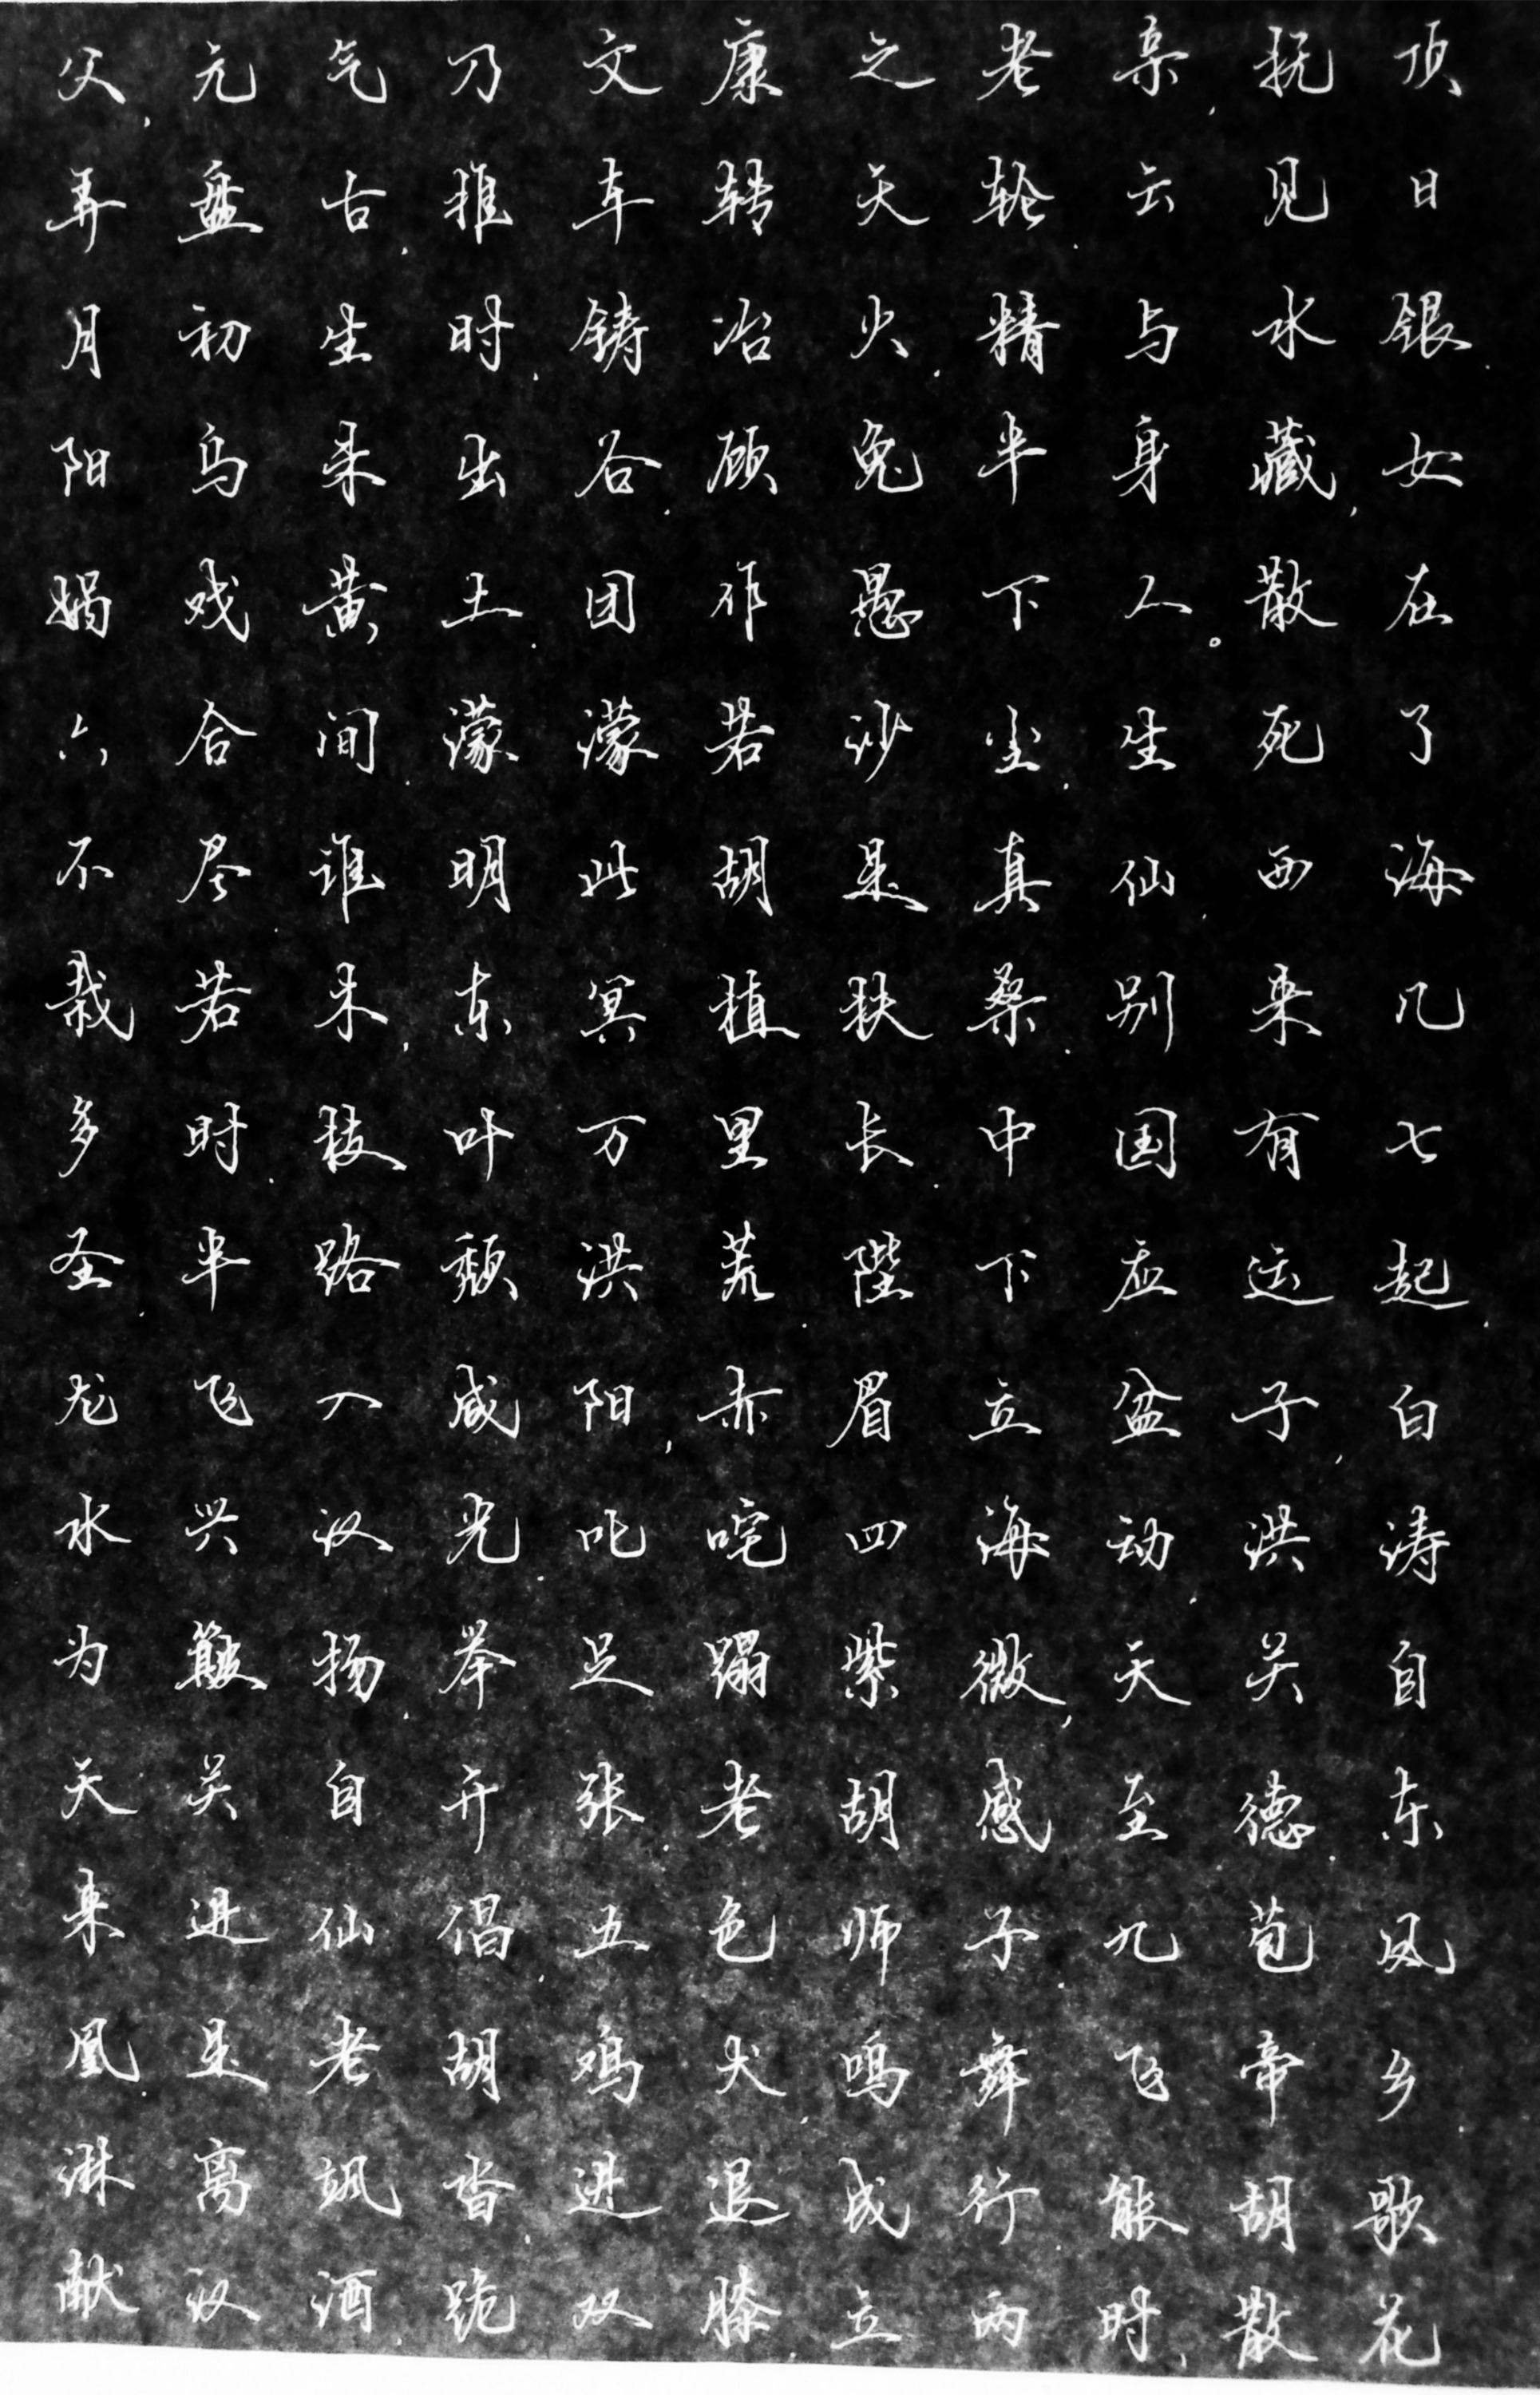 父,元气乃文康之老亲,抚顶
弄盘古.推车转天轮.云见日
月初生时.铸冶火.精与水银.
阳乌未出谷.顾兔半身藏,女
娲戏黄土.团作愚下人。散在
六合间.濛濛若沙尘.生死了
不尽.谁明此胡是真仙.西海
栽若木,东冥植扶桑.别来几
多时.枝叶万里长.中国有七
圣.半路颓洪荒.陛下应运起.
龙飞入咸阳,赤眉立盆子,白
水兴汉光.叱咤四海动.洪涛
为簸扬.举足蹋紫微,天关自
天关自开张.老胡感至德.东
来进仙倡.五色师子.九苞凤
凰.是老胡鸡犬.鸣舞飞帝乡.
淋离飒沓.进退成行能胡歌
献汉酒.跪双膝.立两时,散花